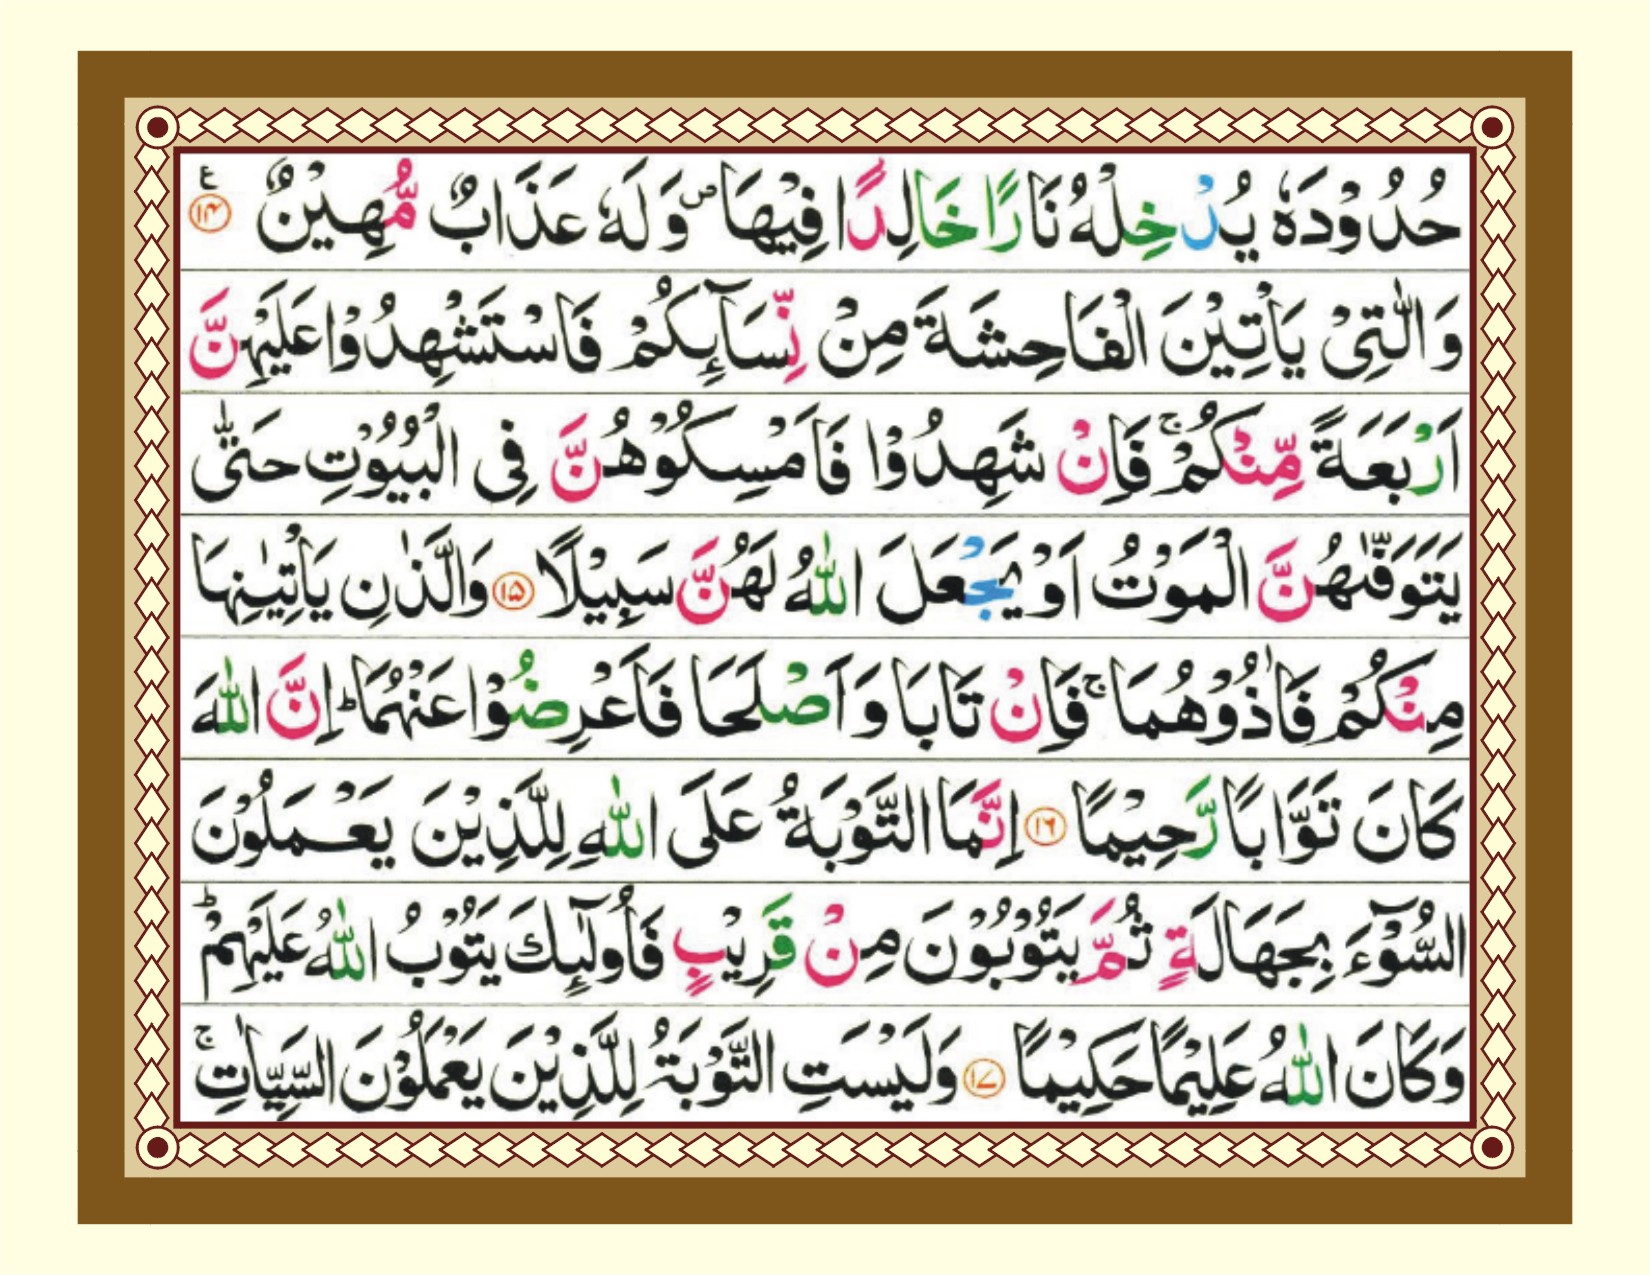 حُدُوْدَهٗ یُدْخِلْهُ نَارًا خَالِدًا فِیْهَا ۪ وَلَهٗ عَذَابٌ مُّهِیْنٌ ۠ ﴿۱۴﴾ ع
وَالّٰتِیْ یَاْتِیْنَ الْفَاحِشَةَ مِنْ نِّسَآىِٕكُمْ فَاسْتَشْهِدُوْا عَلَیْهِنَّ
اَرْبَعَةً مِّنْكُمْ ۚ فَاِنْ شَهِدُوْا فَاَمْسِكُوْهُنَّ فِی الْبُیُوْتِ حَتّٰی
یَتَوَفّٰىهُنَّ الْمَوْتُ اَوْ یَجْعَلَ اللّٰهُ لَهُنَّ سَبِیْلًا ﴿۱۵﴾ وَالَّذٰنِ یَاْتِیٰنِهَا
مِنْكُمْ فَاٰذُوْهُمَا ۚ فَاِنْ تَابَا وَاَصْلَحَا فَاَعْرِضُوْا عَنْهُمَا ؕ اِنَّ اللّٰهَ
كَانَ تَوَّابًا رَّحِیْمًا ﴿۱۶﴾ اِنَّمَا التَّوْبَةُ عَلَی اللّٰهِ لِلَّذِیْنَ یَعْمَلُوْنَ
السُّوْٓءَ بِجَهَالَةٍ ثُمَّ یَتُوْبُوْنَ مِنْ قَرِیْبٍ فَاُولٰٓىِٕكَ یَتُوْبُ اللّٰهُ عَلَیْهِمْ ؕ
وَكَانَ اللّٰهُ عَلِیْمًا حَكِیْمًا ﴿۱۷﴾ وَلَیْسَتِ التَّوْبَةُ لِلَّذِیْنَ یَعْمَلُوْنَ السَّیِّاٰتِ ۚ